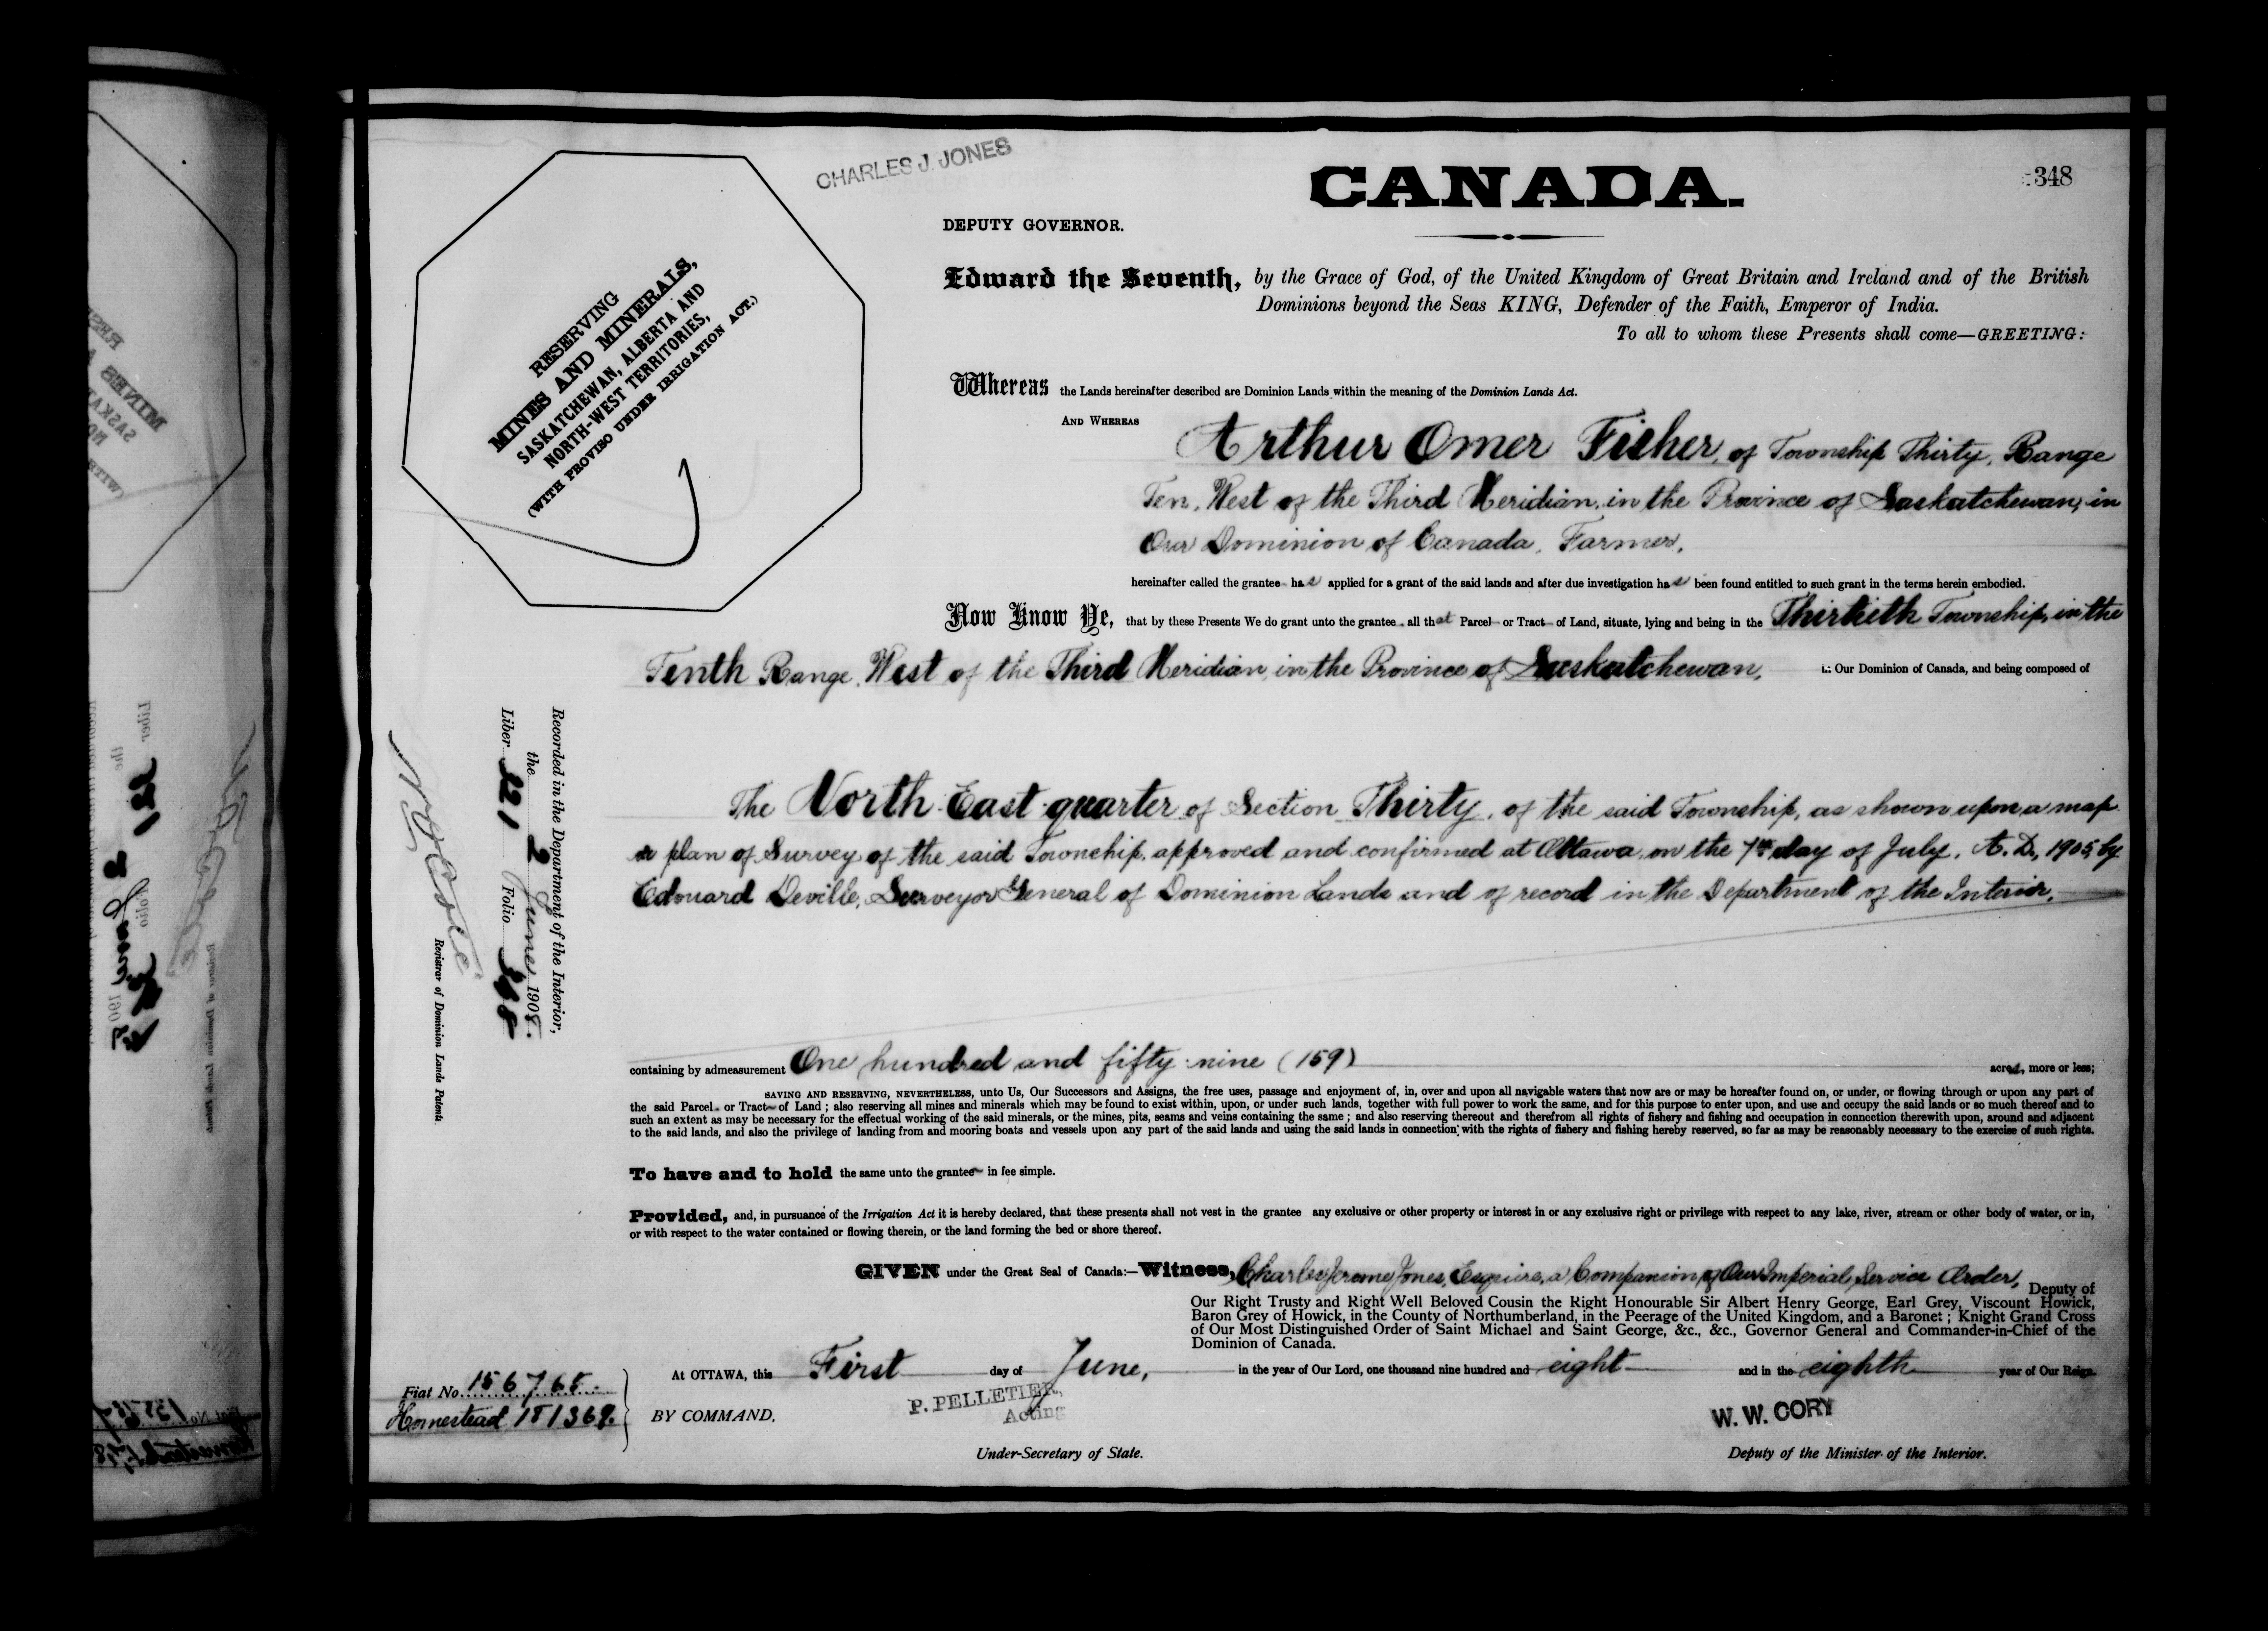 CHARLES J. JONES
CANADA.
348
DEPUTY GOVERNOR.
RESERVING
MINES AND MINERALS,
SASKATCHEWAN, ALBERTA AND
NORTH-WEST TERRITORIES,
(WITH PROVISO UNDER IRRIGATION ACT.)
Edward the Seventh, by the Grace of God, of the United Kingdom of Great Britain and Ireland and of the British
Dominions beyond the Seas KING, Defender of the Faith, Emperor of India.
To all to whom these Presents shall come—GREETING:
Whereas the Lands hereinafter described are Dominion Lands within the meaning of the Dominion Lands Act.
AND WHEREAS
Arthur Omer Fisher, of Township Thirty, Range
Ten, West of the Third Meridian, in the Province of Saskatchewan, in
Our Dominion of Canada, Farmer,
hereinafter called the grantee has applied for a grant of the said lands and after due investigation has been found entitled to such grant in the terms herein embodied.
Now Know Ye, that by these Presents We do grant unto the grantee all that Parcel or Tract of Land, situate, lying and being in the Thirtieth Township, in the
Tenth Range, West of the Third Meridian, in the Province of Saskatchewan, in Our Dominion of Canada, and being composed of
The North East quarter of Section Thirty, of the said Township, as shown upon a map
or plan of Survey of the said Township, approved and confirmed at Ottawa, on the 7th day of July, A.D., 1905, by
Edouard Deville, Surveyor General of Dominion Lands and of record in the Department of the Interior.
Recorded in the Department of the Interior,
the 2 June 1908.
Liber 221 Folio 348
Registrar of Dominion Lands Patents
containing by admeasurement One hundred and fifty nine (159) acres, more or less;
SAVING AND RESERVING, NEVERTHELESS, unto Us, Our Successors and Assigns, the free uses, passage and enjoyment of, in, over and upon all navigable waters that now are or may be hereafter found on, or under, or flowing through or upon any part of
the said Parcel or Tract of Land; also reserving all mines and minerals which may be found to exist within, upon, or under such lands, together with full power to work the same, and for this purpose to enter upon, and use and occupy the said lands or so much thereof and to
such an extent as may be necessary for the effectual working of the said minerals, or the mines, pits, seams and veins containing the same; and also reserving thereout and therefrom all rights of fishery and fishing and occupation in connection therewith upon, around and adjacent
to the said lands, and also the privilege of landing from and mooring boats and vessels upon any part of the said lands and using the said lands in connection with the rights of fishery and fishing hereby reserved, so far as may be reasonably necessary to the exercise of such rights.
To have and to hold the same unto the grantee in fee simple.
Provided, and, in pursuance of the Irrigation Act it is hereby declared, that these presents shall not vest in the grantee any exclusive or other property or interest in or any exclusive right or privilege with respect to any lake, river, stream or other body of water, or in,
or with respect to the water contained or flowing therein, or the land forming the bed or shore thereof.
GIVEN under the Great Seal of Canada:—Witness, Charles Jerome Jones, Esquire, a Companion of Our Imperial Service Order, Deputy of
Our Right Trusty and Right Well Beloved Cousin the Right Honourable Sir Albert Henry George, Earl Grey, Viscount Howick,
Baron Grey of Howick, in the County of Northumberland, in the Peerage of the United Kingdom, and a Baronet; Knight Grand Cross
of Our Most Distinguished Order of Saint Michael and Saint George, &c., &c., Governor General and Commander-in-Chief of the
Dominion of Canada.
At OTTAWA, this First day of June, in the year of Our Lord, one thousand nine hundred and eight and in the eighth year of Our Reign.
Fiat No. 156765.
Homestead 181369.
BY COMMAND,
P. PELLETIER,
Acting
Under-Secretary of State.
W. W. CORY
Deputy of the Minister of the Interior.